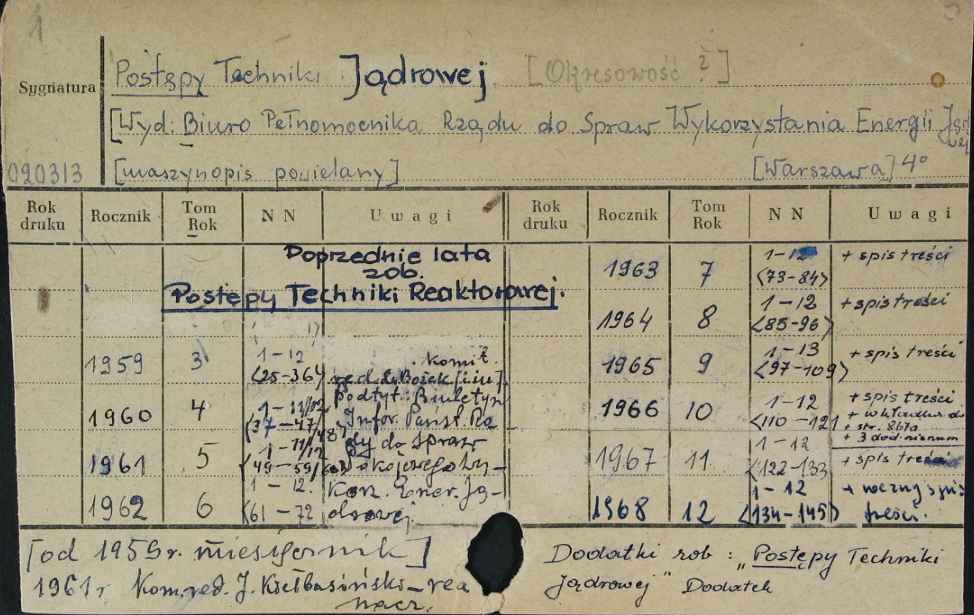 1
Sygnatura
Postępy Techniki Jądrowej [Okresowość ?]
[Wyd: Biuro Pełnomocnika Rządu do Spraw Wykorzystania Energii Jądr
090313 [maszynopis powielany] [Warszawa] 4°
Rok druku Rocznik Tom Rok NN Uwagi Rok druku Rocznik Tom Rok NN Uwagi
Poprzednie lata
zob.
Postępy Techniki Reaktorowej.
1959 3 1-12 <25-36>
Komit. red. L. Bożek [i in]
podtyt: Biuletyn
Infor. Państ. Ra
dy do Spraw
Pokojowego Wy-
Korz. Ener. Ją-
drowej.
1960 4 1-11/12 <37-47/48>
1961 5 1-11/12 <49-59/60>
1962 6 1-12. <61-72>
1963 7 1-12 <73-84> + spis treści
1964 8 1-12 <85-96> + spis treści
1965 9 1-13 <97-109> + spis treści
1966 10 1-12 <110-121 + spis treści
+ wkładka do
+ str.
+ 3 dod.
1967 11 1-12 <122-133 + spis treści
1968 12 1-12 <134-145> + roczny spis
treści.
[od 1959r. miesięcznik]
1961r Kom. red. J. Kiełbasiński-rea
nacz.
Dodatki zob: "Postępy Techniki
Jądrowej" Dodatek